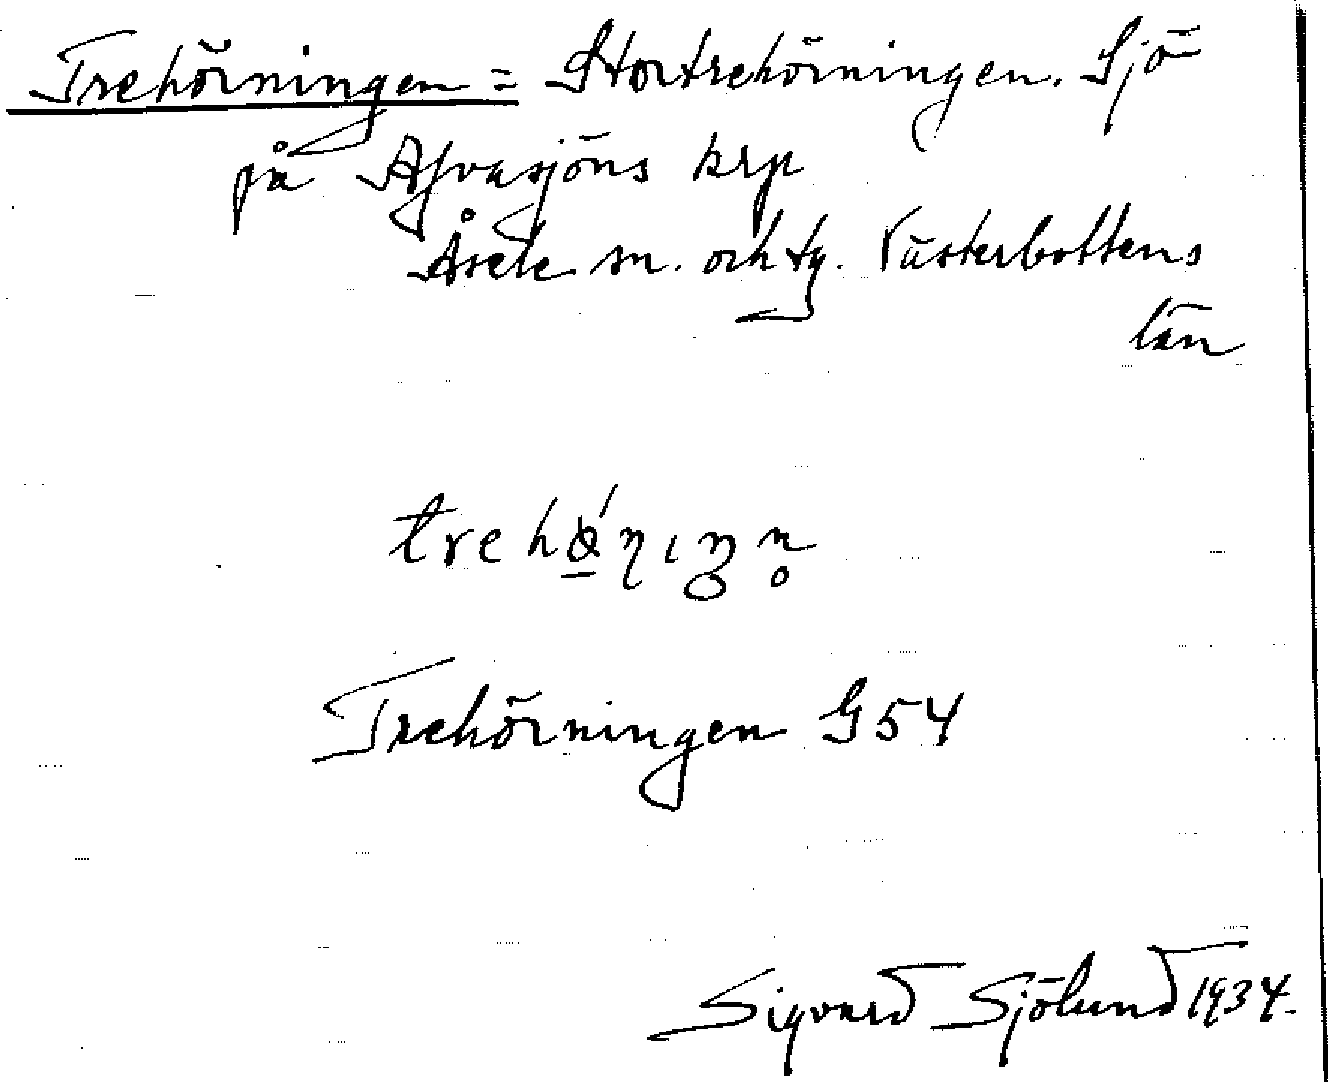 Trehörningen = Stortrehörningen. Sjö
på Afvasjöns krp
Åsele sn. och tg. Västerbottens
län
Trehörningen G54
Sigvard Sjölund 1934.